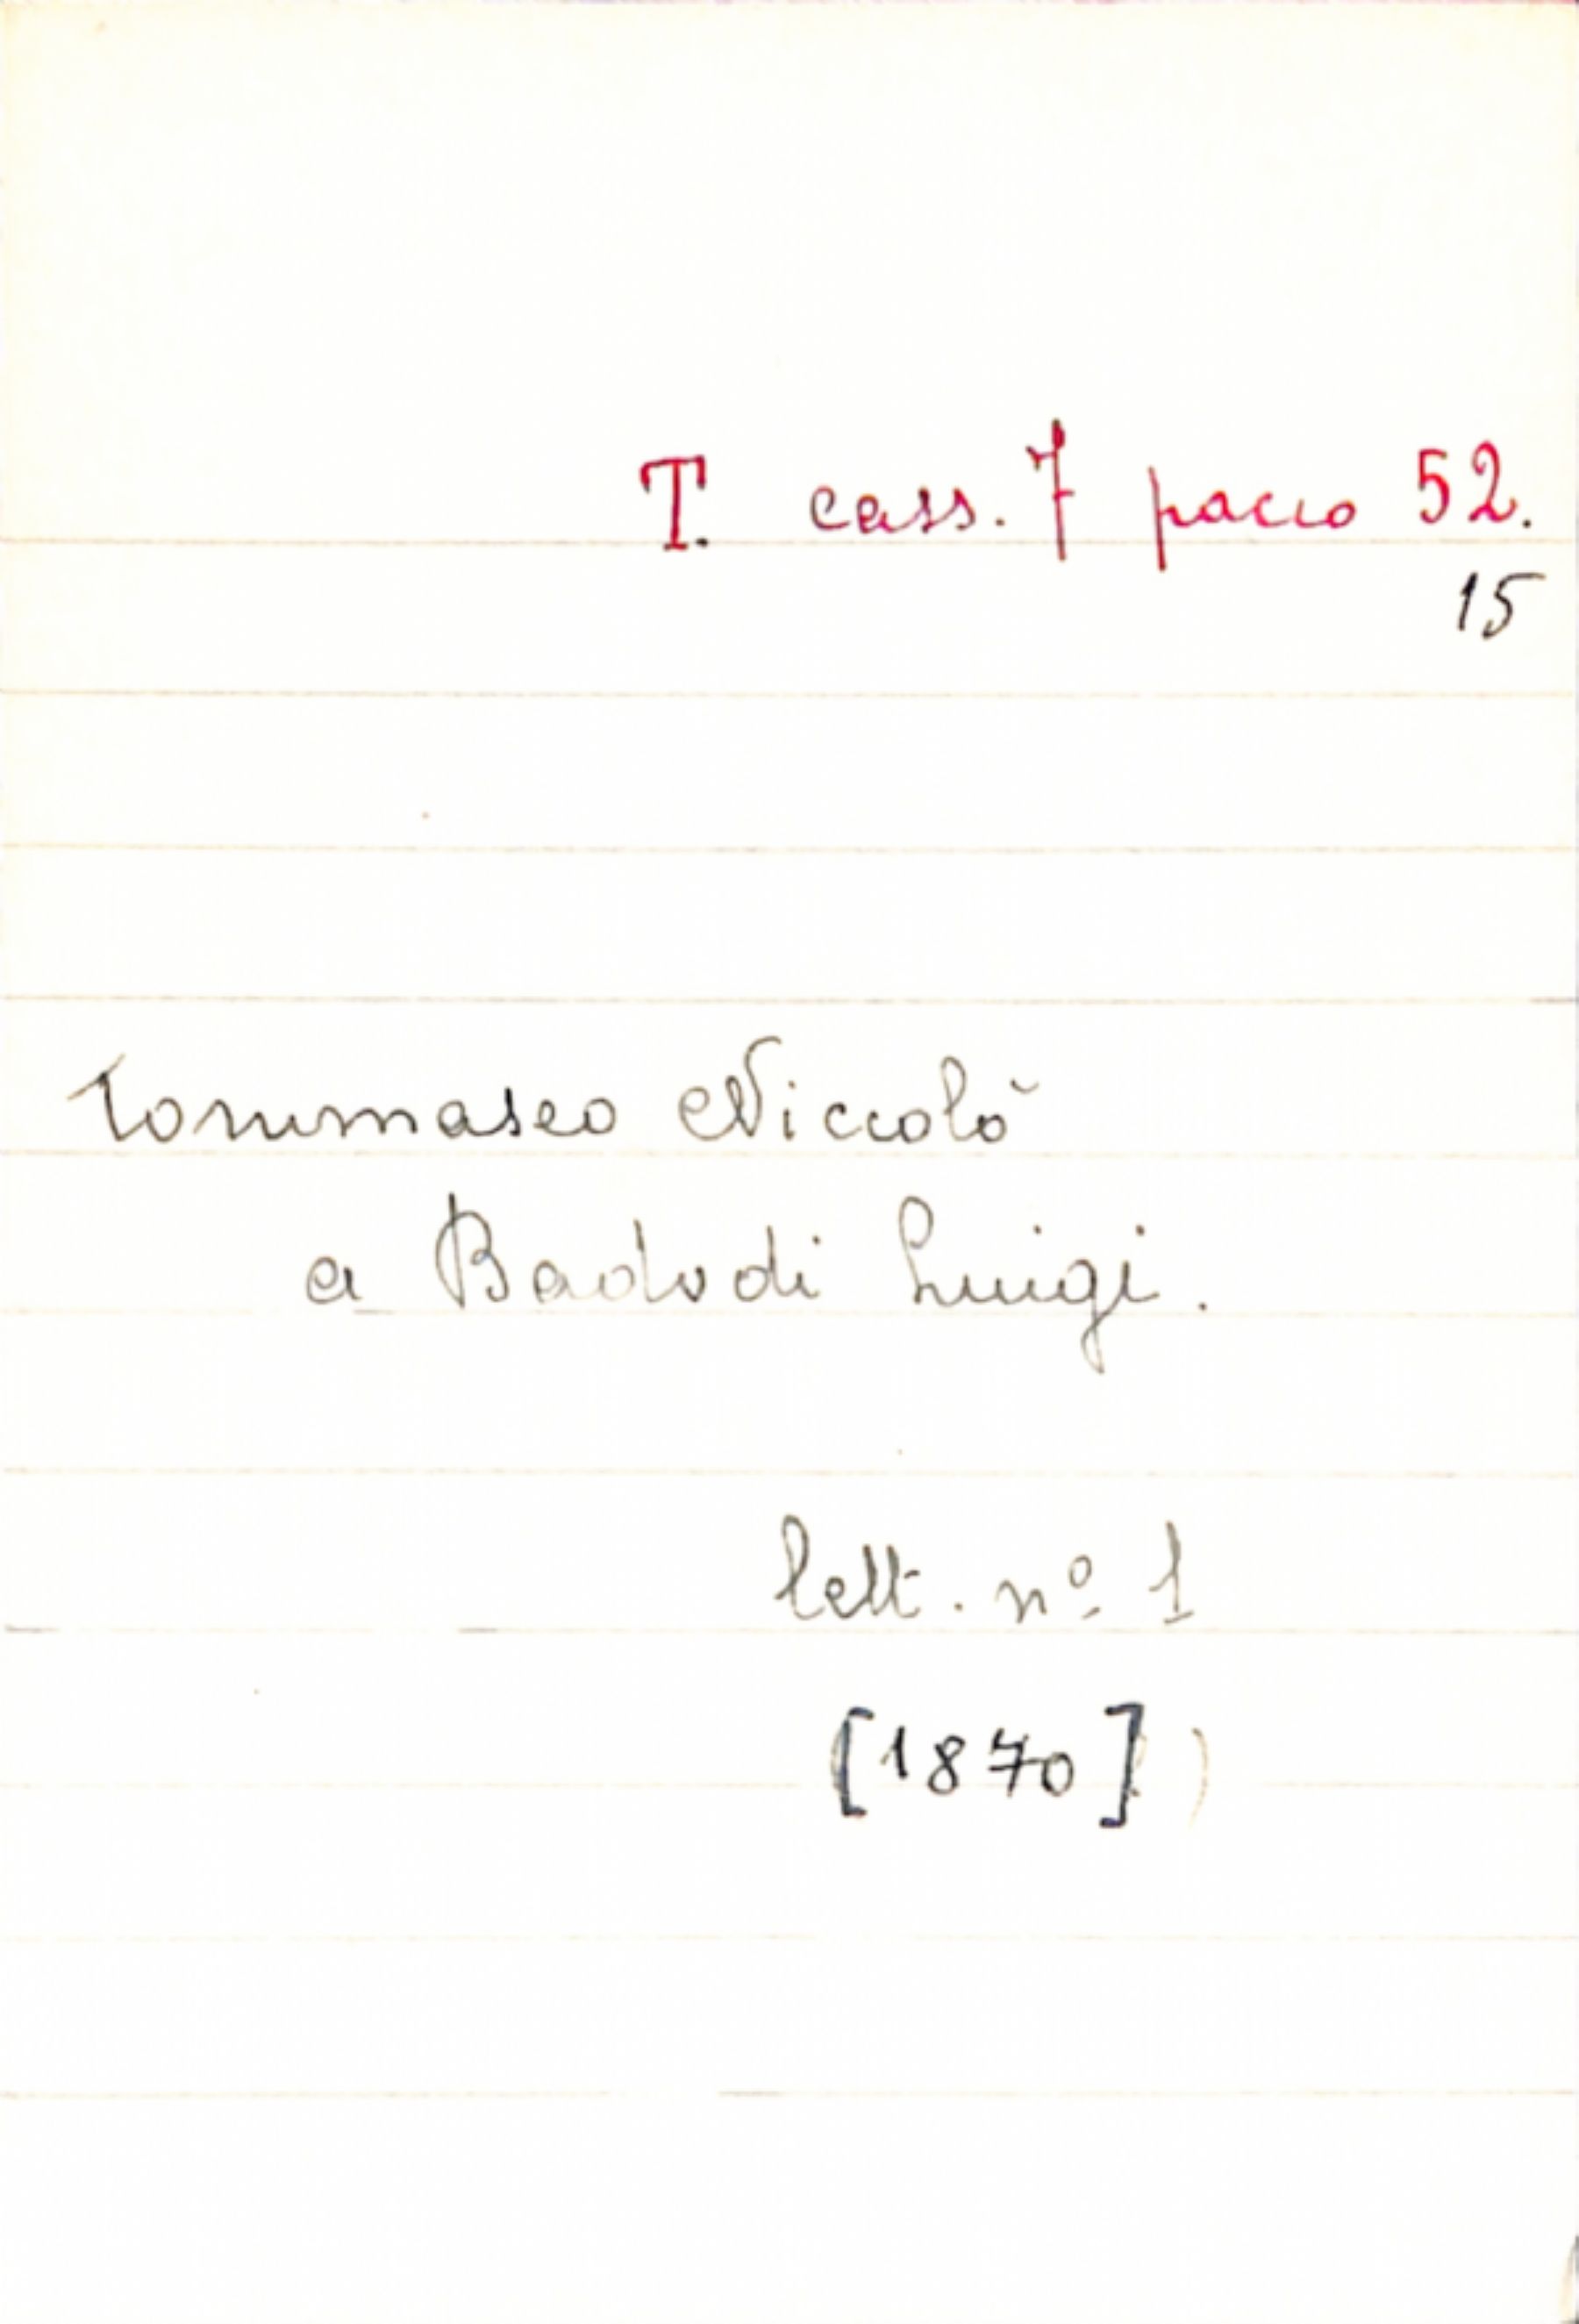 T. cass. 7 pacco 52.
15
Tommaseo Niccolò
a Luigi.
lett. nº 1
[1870]